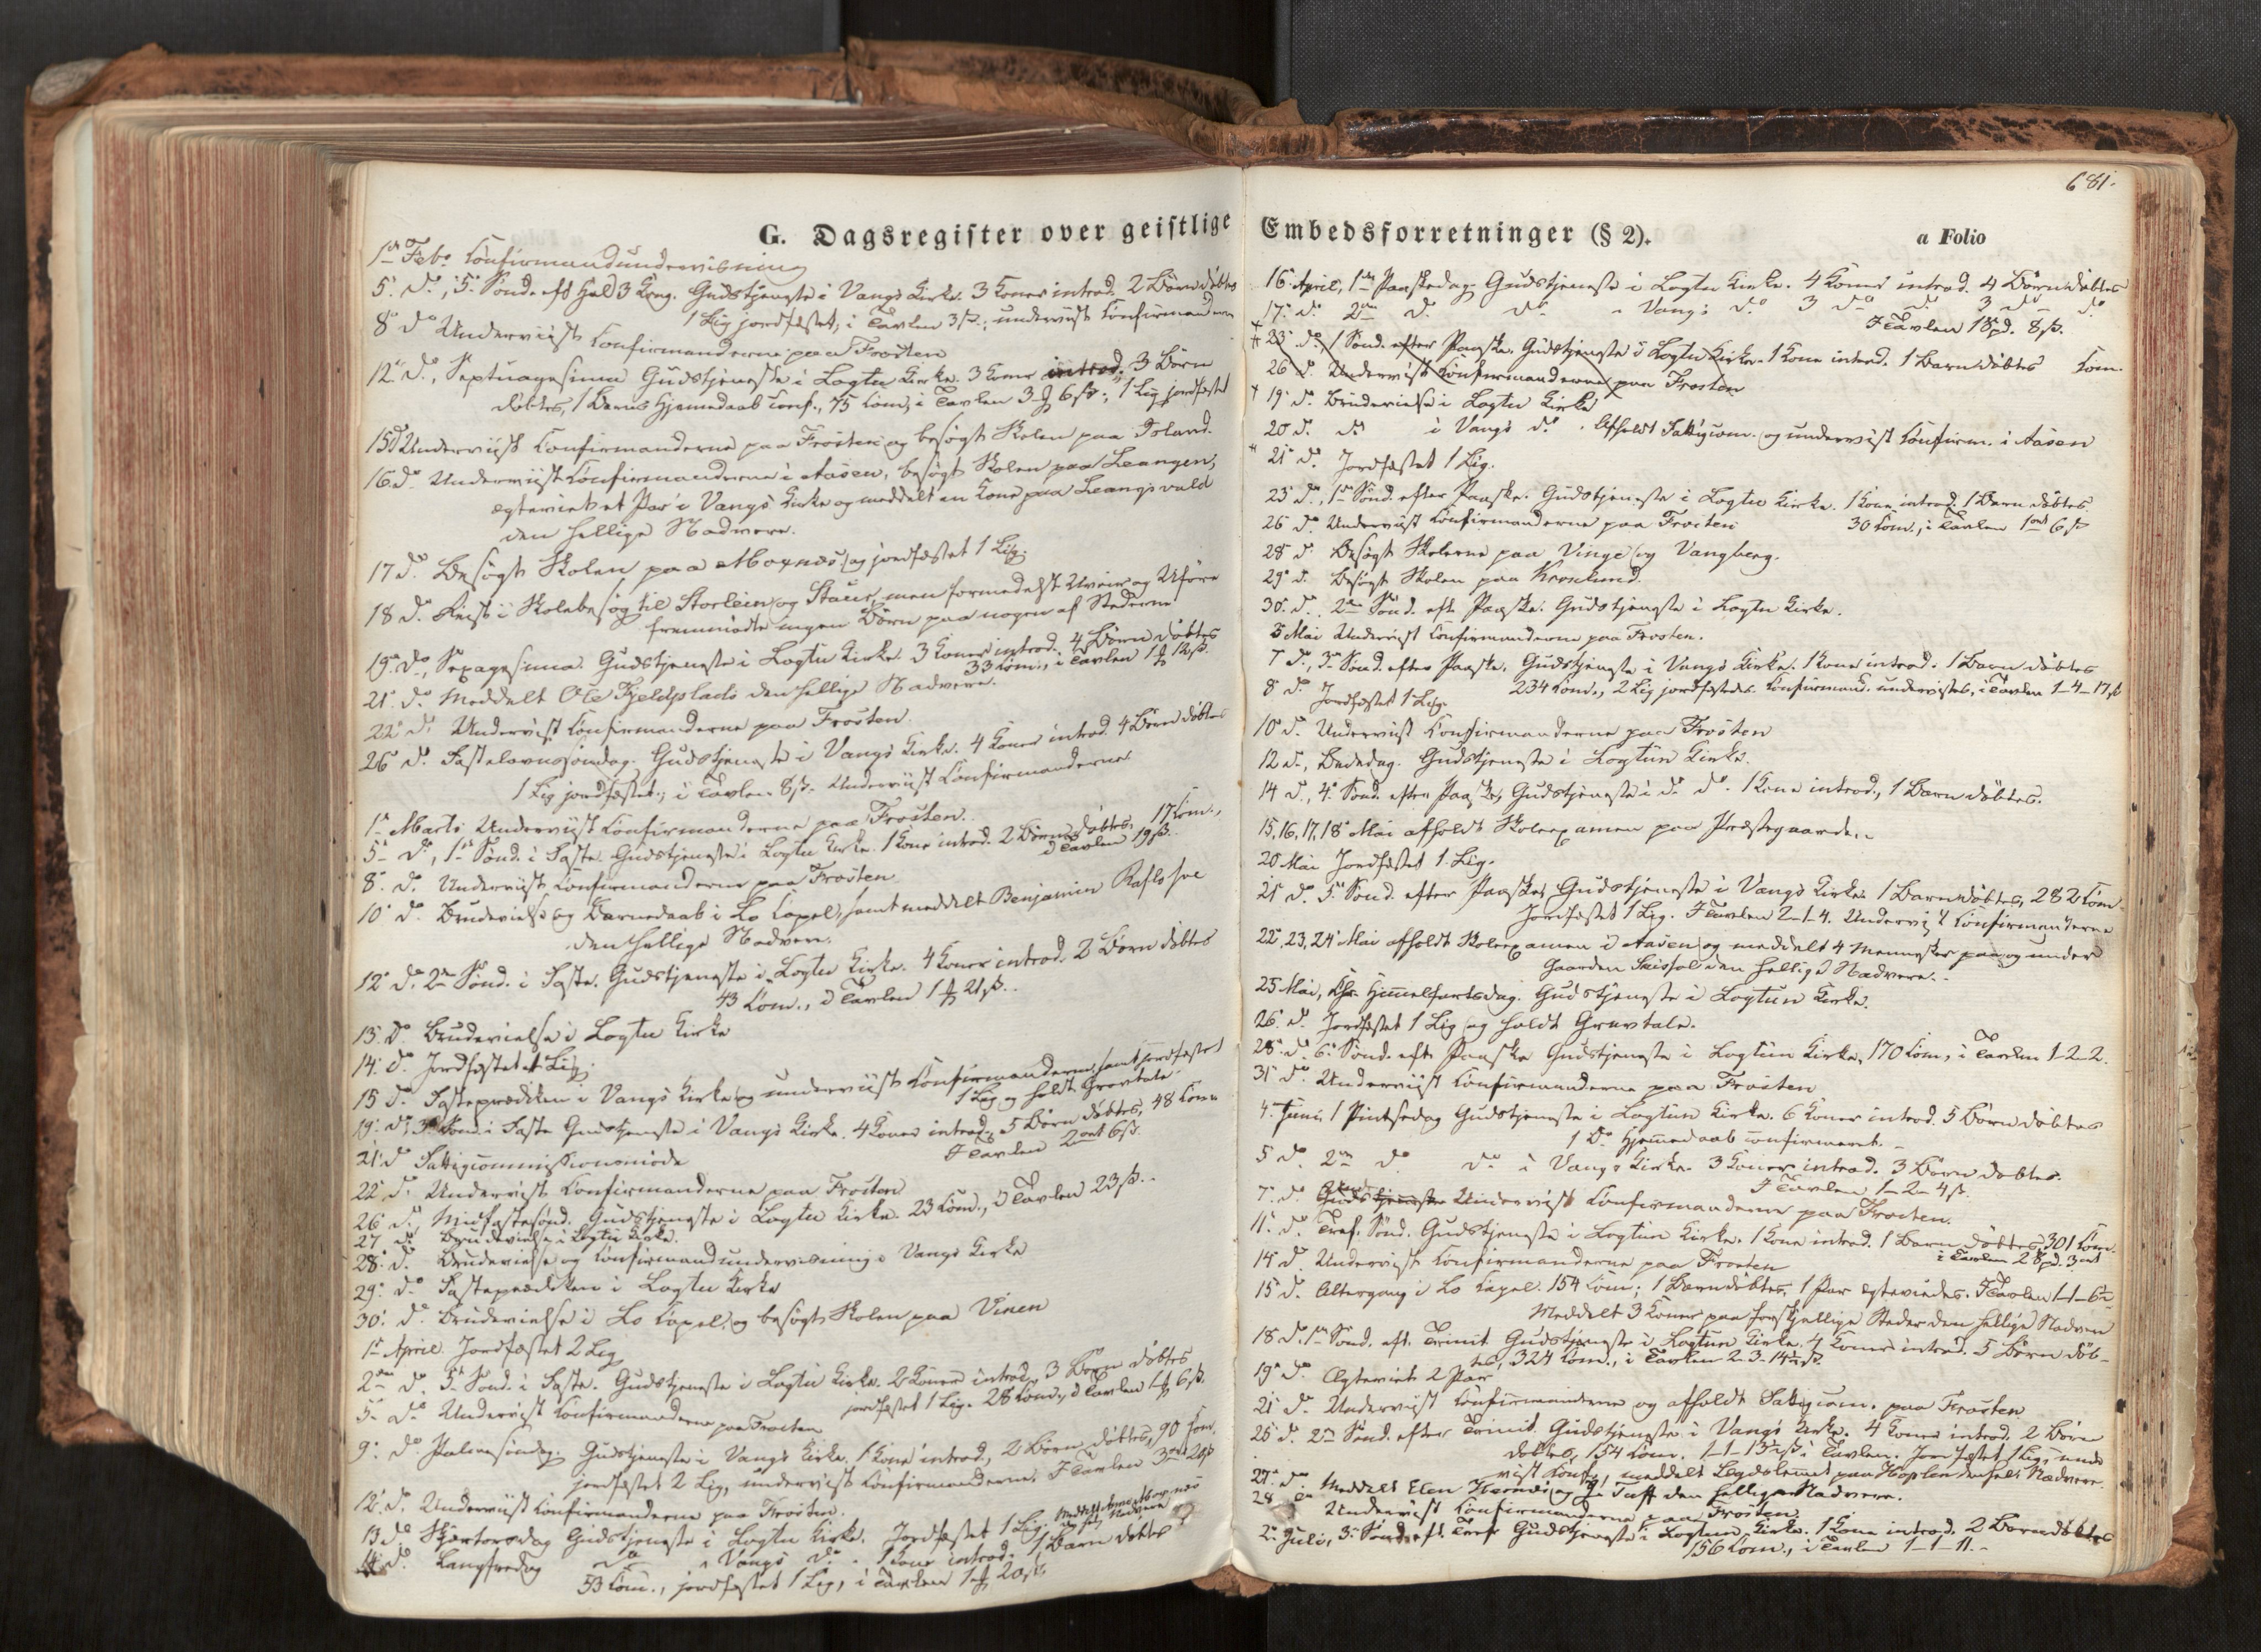 G. Dagsregister over geistlige
1ste Febr. Confirmandundervisning
5. do, 5. Sønd. eft. Hel. 3 Kong. Gudstjeneste i Vangs Kirke. 3 Koner introd. 2 Børn døbtes
1 Lig jordfæstet, i Tavlen 3 ß., underviist Confirmanderne
8de do Underviist Confirmanderne paa Frosten
12. do, Septuagesima Gudstjeneste i Logtu Kirke. 3 Koner introd. 3 Børn
døbtes, 1 Barns Hjemmedaab conf., 75 Com., i Tavlen 3 6 ß., 1 Lig jordfæstet
15 do Underviist Confirmanderne paa Frosten og besøgt Skolen paa
16 do. Underviist Confirmanderne i Aasen, besøgt Skolen paa Leangen,
egteviet et Par i Vangs Kirke og meddelt en Kone paa Leangsvald
den hellige Nadvere.
17 do. Besøgt Skolen paa Moxnæs og jordfæstet 1 Lig.
18 do. Reist i Skolebesøg til Storlein og Staur, men formedelst Uveir og Uføre
fremmødte ingen Børn paa nogen af Stederne
19. do, Sexagesima. Gudstjeneste i Logtu Kirke. 3 Koner introd. 4 Børn døbtes
33 Com., i Tavlen 1 12 ß.
21. do Meddelt Ole Fjeldplads den hellige Nadvere.
22 do. Underviist Confirmanderne paa Frosten.
26 do. Fastelavnssøndag. Gudstjeneste i Vangs Kirke. 4 Koner introd. 4 Børn døbtes
1 Lig jordfæstet, i Tavlen 8 ß. Underviist Confirmanderne
1ste Marts Underviist Confirmanderne paa Frosten.
5. do, 1ste Sønd. i Faste. Gudstjeneste i Logtu Kirke. 1 Kone introd. 2 Børn døbtes, 17 Com.,
i Tavlen 19 ß.
8. do. Underviist Confirmanderne paa Frosten
10 do. Brudevielse og Barnedaab i Lo Capel, samt meddelt Benjamin
den hellige Nadvere.
12 do. 2den Sønd. i Faste. Gudstjeneste i Logtu Kirke. 4 Koner introd. 2 Børn døbtes
43 Com., i Tavlen 1 21 ß.
13. do. Brudevielse i Logtu Kirke
14. do. Jordfæstet 1 Lig.
15 do. Fasteprædiken i Vangs Kirke og underviist Confirmanderne, samt jordfæstet
1 Lig og holdt Gravtale.
19. do, 3die Sønd. i Faste Gudstjeneste i Vangs Kirke. 4 Koner introd., 5 Børn døbtes, 48 Com.
I Tavlen 2 ort 6 ß.
21. do Fattigcommissionsmøde
22 do. Underviist Confirmanderne paa Frosten
26 do, Midfastesønd. Gudstjeneste i Logtu Kirke. 23 Com., i Tavlen 23 ß.
27 do. Brudevielse i Logtu Kirke.
28. do. Brudevielse og Confirmandundervisning i Vangs Kirke
29. do. Fasteprædiken i Logtu Kirke
30. do. Brudevielse i Lo Capel og besøgt Skolen paa Vinen
1ste April. Jordfæstet 2 Lig
2den do. 5te Sønd. i Faste. Gudstjeneste i Logtu Kirke. 2 Koner introd., 3 Børn døbtes
jordfæstet 1 Lig. 28 Com., i Tavlen 1 6 ß.
5. do Underviist Confirmanderne paa Frosten
9. do Palmesøndag. Gudstjeneste i Vangs Kirke. 1 Kone introd., 2 Børn døbtes, 90 Com.
jordfæstet 2 Lig, underviist Confirmanderne. I Tavlen 3 ort
12. do. Underviist Confirmanderne paa Frosten.
13 do Skjertorsdag Gudstjeneste i Logtu Kirke. Jordfæstet 1 Lig. Meddelt Anne Moxnæs den hell. Nadvere
14. do. Langfredag do i Vangs do. 1 Kone introd. 1 Barn døbtes
53 Com., jordfæstet 1 Lig, i Tavlen 1 20 ß.
681.
Embedsforretninger (§ 2).
a Folio
16 April, 1ste Paaskedag. Gudstjeneste i Logtu Kirke. 4 Koner introd. 4 Børn døbtes
17. do. 2den do. do i Vangs do 3 do do 3 do do
I Tavlen 1 Spd. 8 ß.
23 do, 1 Sønd. efter Paaske. Gudstjeneste i Logtu Kirke. 1 Kone introd. 1 Barn døbtes Com.
26 do. Underviist Confirmanderne paa Frosten
19. do. Brudevielse i Logtu Kirke
20 do. do i Vangs do. Afholdt Fattigcom. og underviist Confirm. i Aasen
21 do. Jordfæstet 1 Lig.
23 do, 1ste Sønd. efter Paaske. Gudstjeneste i Logtu Kirke. 1 Kone introd. 1 Barn døbtes.
30 Com., i Tavlen 1 ort 6 ß
26 do Underviist Confirmanderne paa Frosten
28 do. Besøgt Skolerne paa Vinge og Vangberg.
29. do. Besøgt Skolen paa
30. do. 2den Sønd. eft. Paaske. Gudstjeneste i Logtu Kirke.
3 Mai Underviist Confirmanderne paa Frosten.
7 do, 3die Sønd. efter Paaske. Gudstjeneste i Vangs Kirke. 1 Kone introd. 1 Barn døbtes
234 Com., 2 Lig jordfæstedes. Confirmand. undervistes, i Tavlen 1-4-17 ß
8 do. Jordfæstet 1 Lig.
10 do. Underviist Confirmanderne paa Frosten
12 do, Bededag. Gudstjeneste i Logtun Kirke.
14 do, 4de Sønd. efter Paaske, Gudstjeneste i do do. 1 Kone introd., 1 Barn døbtes.
15, 16, 17, 18 Mai afholdt Skoleexamen paa Præstegaarden.
20 Mai Jordfæstet 1 Lig.
21 do. 5te Sønd. efter Paaske, Gudstjeneste i Vangs Kirke. 1 Barn døbtes, 282 Com.
Jordfæstet 1 Lig. I Tavlen 2-1-4. Underviist Confirmanderne
22, 23, 24 Mai afholdt Skoleexamen i Aasen og meddelt 4 Mennesker paa og under
Gaarden den hellige Nadvere.
25 Mai, Chr. Himmelfartsdag. Gudstjeneste i Logtun Kirke.
26. do. Jordfæstet 1 Lig og holdt Gravtale.
28. do. 6te Sønd. eft. Paaske Gudstjeneste i Logtun Kirke, 170 Com., i Tavlen 1-2-2.
31 do. Underviist Confirmanderne paa Frosten
4. Juni, 1 Pintsedag Gudstjeneste i Logtun Kirke. 6 Koner introd. 5 Børn døbtes
1 Do Hjemmedaab confirmeret.
5 do. 2den do. do i Vangs Kirke. 3 Koner introd. 3 Børn døbtes.
I Tavlen 1-2-4 ß.
7. do. Gudstjeneste Underviist Confirmanderne paa Frosten.
11. do. Tref. Sønd. Gudstjeneste i Logtun Kirke. 1 Kone introd. 1 Barn døbtes, 301 Com.
i Tavlen 2 Spd. 3 ort
14 do. Underviist Confirmanderne paa Frosten
15 do. Altergang i Lo Capel. 154 Com., 1 Barn døbtes, 1 Par egteviedes. I Tavlen 1-1-6
Meddelt 3 Koner paa forskjellige Steder den hellige Nadvere
18 do. 1ste Sønd. eft. Trinit. Gudstjeneste i Logtun Kirke. 4 Koner introd. 5 Børn døb-
tes, 324 Com., i Tavlen 2-3-14 ß.
19. do. Egteviet 2 Par
21 do. Underviist Confirmanderne og afholdt Fattigcom. paa Frosten.
25 do. 2den Sønd. efter Trinit. Gudstjeneste i Vangs Kirke. 4 Koner introd. 2 Børn
døbtes, 154 Com. 1-1-13 ß i Tavlen. Jordfæstet 1 Lig, under-
viist Conf., meddelt Legdslemmet paa Hoplen den hell. Nadvere.
27. do Meddelt Elen den hellige Nadvere.
28 do Underviist Confirmanderne paa Frosten.
2. Juli, 3. Sønd. eft. Tref. Gudstjeneste i Logtun Kirke. 1 Kone introd. 2 Børn døbtes
156 Com., i Tavlen 1-1-11.